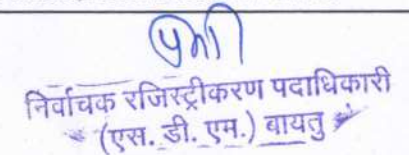 निर्वाचक रजिस्ट्रीकरण पदाधिकारी
(एस. डी. एम.) बायतु